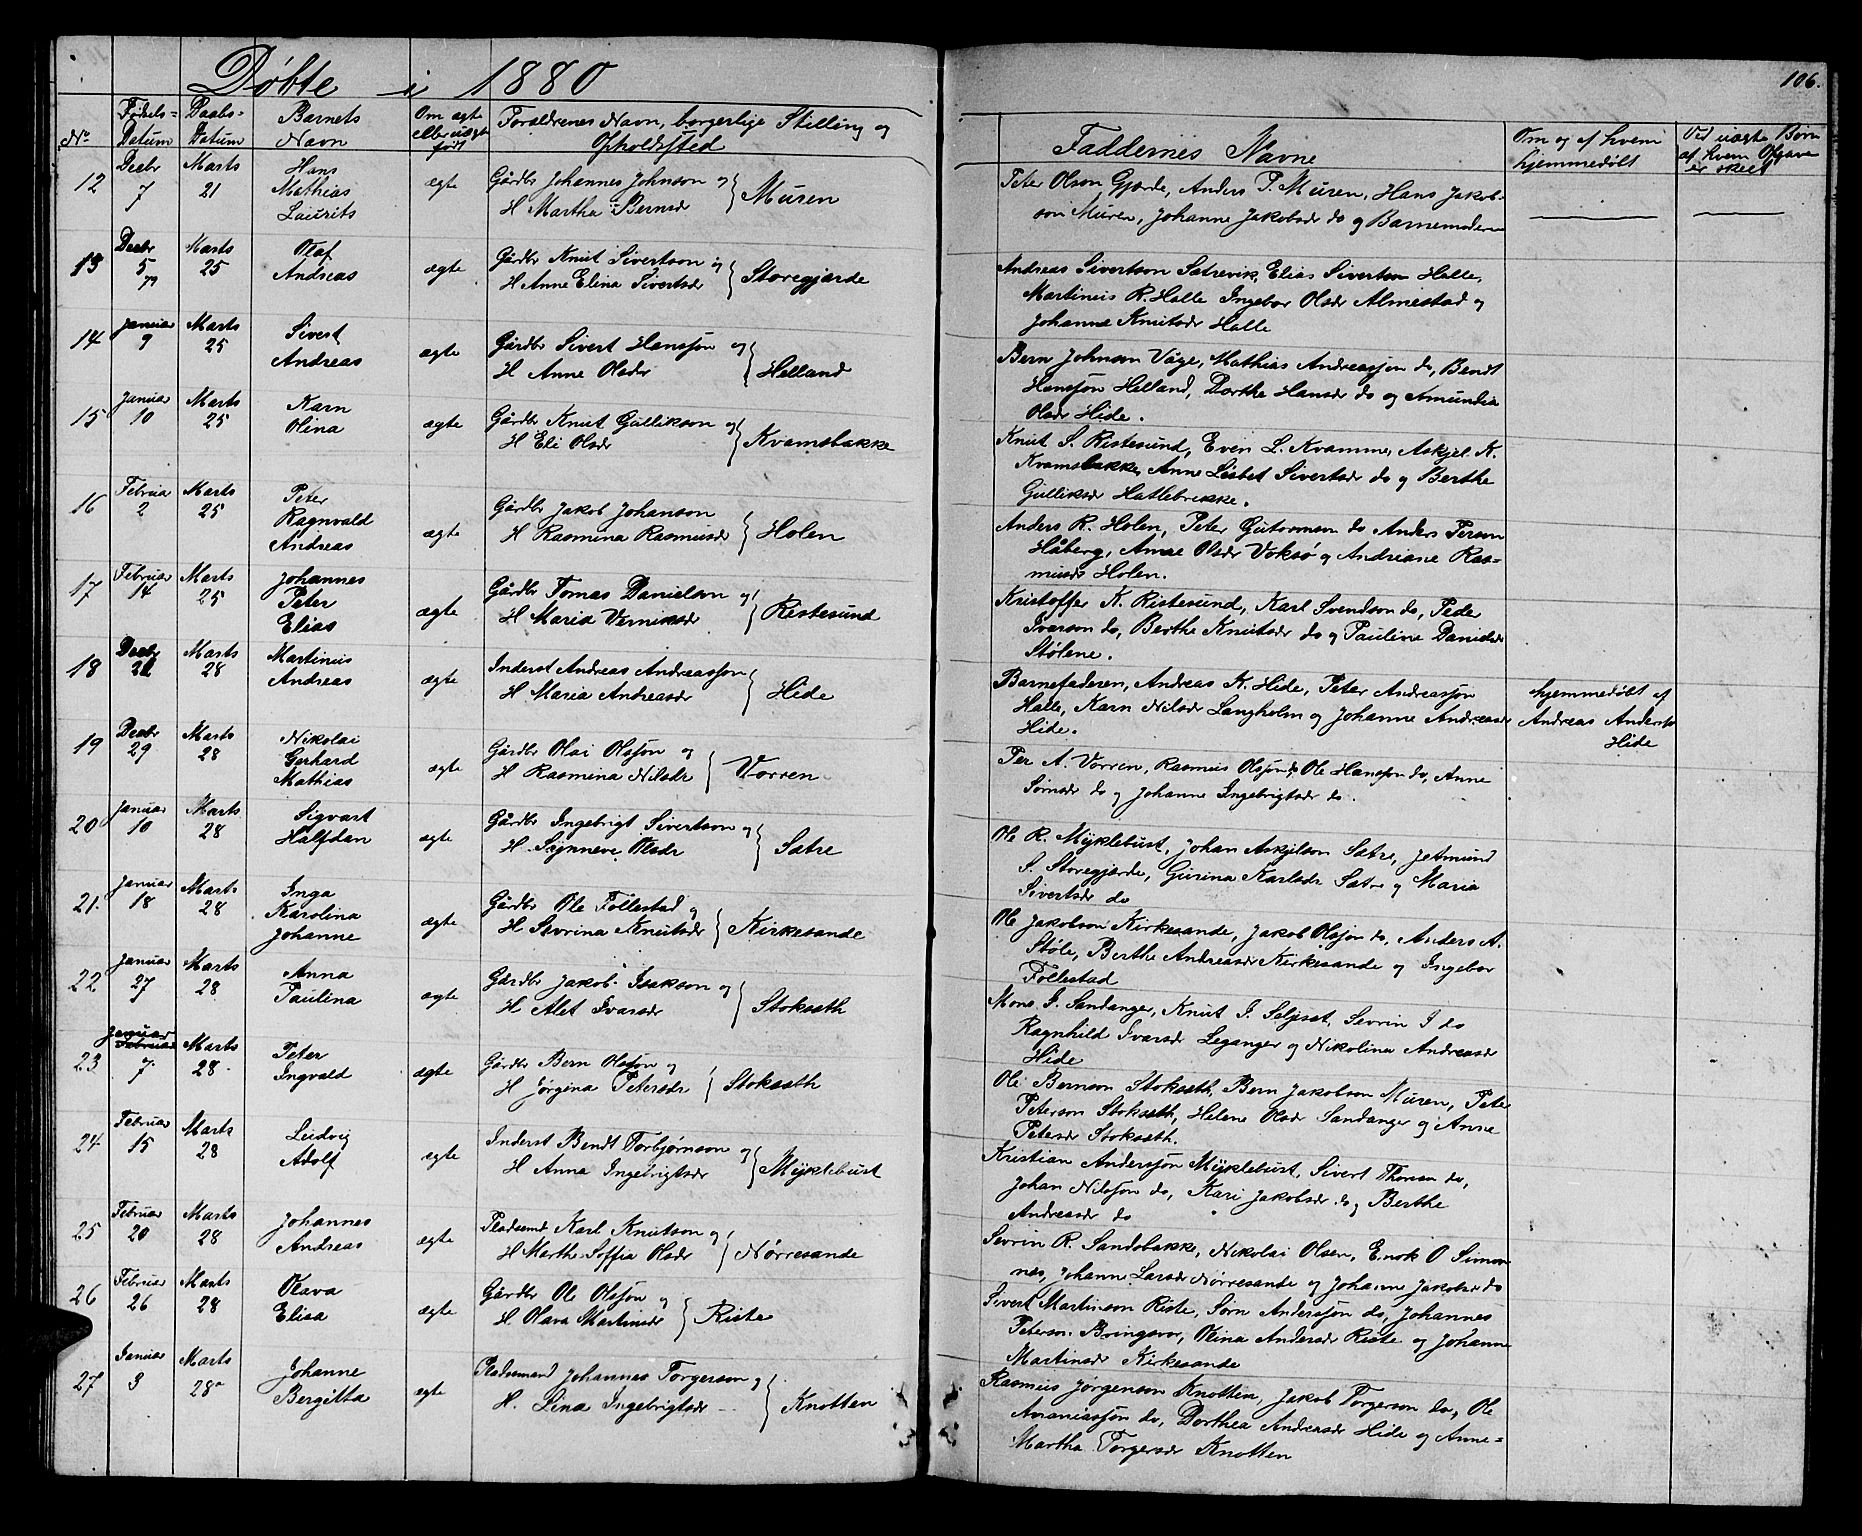 Døbte i 1880
106.
No
Fødsels=
Datum
Daabs=
Datum
Barnets
Navn
Om ægte
eller uægte
født
Forældrenes Navn, borgerlige Stilling og
Opholdssted
Faddernes Navne
Om og af hvem
hjemmedøbt
Ved uægte Børn
af hvem Opgave
er skeet
12 Decbr 7 Marts 21 Hans
Mathias
Laurits
ægte
Gårdbr Johannes Johnson og
H Martha Bernsdr } Muren
Peter Olson Gjerde, Anders P. Muren, Hans Jakob-
son Muren, Johanne Jakobsdr do og Barnemoderen
13 Decbr 5 79 Marts 25 Olaf
Andreas
ægte
Gårdbr Knut Sivertson og
H Anne Elina Sivertsdr } Storegjerde
Andreas Sivertson Sætrevik, Elias Sivertson Halle,
Martinus R. Halle Ingebor Olsdr Almestad og
Johanne Knutsdr Halle
14 Januar 9 Marts 25 Sivert
Andreas
ægte
Gårdbr Sivert Hansson og
H Anne Olsdr } Helland
Bern Johnson Våge, Mathias Andreassøn do, Bendt
Hanssøn Helland, Dorthe Hansdr do og Amundia
Olsdr Hide.
15 Januar 10 Marts 25 Karn
Olina
ægte
Gårdbr Knut Gullikson og
H Eli Olsdr } Kvamsbakke
Knut S. Ristesund, Even L. Kvamme, Askjel K.
Kvamsbakke, Anne Lisbet Sivertsdr do og Berthe
Gulliksdr Hatlebrekke.
16 Februa 2 Marts 25 Peter
Ragnvald
Andreas
ægte
Gårdbr Jakob Johanson
H Rasmina Rasmusdr } Holen
Anders R. Holen, Peter Gutormson do Anders Person
Håberg, Anne Olsdr Voksø og Andriane Ras=
musdr Holen.
17 Februar 14 Marts 25 Johannes
Peter
Elias
ægte
Gårdbr Tomas Danielson og
H Maria Verniksdr } Ristesund
Kristoffer K. Ristesund, Karl Svendson do, Peder
Ivarson do, Berthe Knutsdr do og Pauline Danielsdr
Stølene.
18 Decbr 21 Marts 28 Martinus
Andreas
ægte
Inderst Andreas Andreassøn
H Maria Andreasdr } Hide
Barnefaderen, Andreas K. Hide, Peter Andreassøn
Halle, Karn Nilsdr Langholm og Johanne Andreasdr
Hide.
hjemmedøbt af
Andreas Anders
Hide
19 Decbr 29 Marts 28 Nikolai
Gerhard
Mathias
ægte
Gårdbr Olai Olssøn og
H Rasmina Nilsdr } Vorren
Per A. Vorren, Rasmus Olssøn do Ole Hanssøn do, Anne
Sørnsdr do og Johanne Ingebrigtsdr do.
20 Januar 10 Marts 28 Sigvart
Halfdan
ægte
Gårdbr Ingebrigt Sivertson og
H Synneve Olsdr } Sætre
Ole R. Myklebust, Johan Askjelson Sætre, Jetmund
S. Storegjerde, Gurina Karlsdr Sætre og Maria
Sivertsdr do
21. Januar 18 Marts 28 Inga
Karolina
Johanne
ægte
Gårdbr Ole Follestad og
H Sevrina Knutsdr } Kirkesande
Ole Jakobson Kirkesande, Jakob Olsøn do, Anders A.
Støle, Berthe Andreasdr Kirkesande og Ingebor
Follestad
22 Januar 27 Marts 28 Anna
Paulina
ægte
Gårdbr Jakob Isakson og
H Alet Ivarsdr } Stokseth
Mons J. Sandanger, Knut J. Seljeset, Sevrin J do
Ragnhild Ivarsdr Leganger og Nikolina Andreasdr
Hide
23 Januar Februar 7 Marts 28 Peter
Ingvald
ægte
Gårdbr Bern Olsøn og
H Jørgina Petersdr } Stokseth
Ole Bernson Stokseth, Bern Jakobson Muren, Peter
Peterson Stokseth, Helene Olsdr Sandanger og Anne
Petersdr Stokseth.
24 Februar 15 Marts 28 Ludvig
Adolf
ægte
Inderst Bendt Torbjørnson og
H Anna Ingebrigtsdr } Myklebust
Kristian Anderssøn Myklebust, Sivert Thoreson do,
Johan Nilssøn do, Kari Jakobsdr do og Berthe
Andreasdr do
25 Februar 20 Marts 28 Johannes
Andreas
ægte
Pladsmd Karl Knutson og
H Marthe Soffia Olsdr } Nørresande
Sevrin R. Sandsbakke, Nikolai Olsen, Enok O Simon
nes, Johanne Larsdr Nørresande og Johanne Jakobsdr do
26 Februar 26 Marts 28 Olava
Elisa
ægte
Gårdbr Ole Olssøn og
H Olava Martinsdr } Riste
Sivert Martinson Riste, Sørn Anderssøn do, Johannes
Peterson Bringsvor, Olina Andersdr Riste og Johanne
Martinsdr Kirkesande
27 Januar 3 Marts 28 Johanne
Bergitta
ægte
Pladsmand Johannes Torgerson og
H. Lina Ingebrigtsdr } Knotten
Rasmus Jørgenson Knotten, Jakob Torgerson do, Ole
Ananiassøn do, Dorthea Andreasdr Hide og Anne=
Martha Torgersdr Knotten